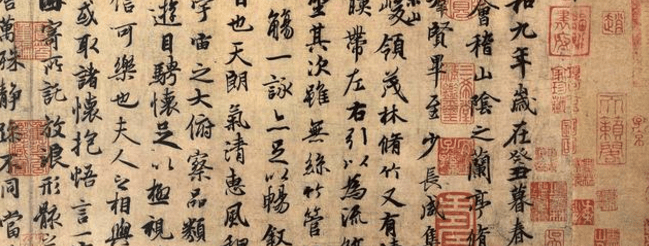 和九年歲在癸丑暮春
會稽山陰之蘭亭脩
羣賢畢至少長咸集
峻領茂林脩竹又有清
暎帶左右引以為流
坐其次雖無絲竹管
觴一詠亦足以暢叙
日也天朗氣清惠風和
宇宙之大俯察品類
遊目騁懷足以極視
信可樂也夫人之相與
或取諸懷抱悟言一
因寄所託放浪形骸
萬殊靜躁不同當